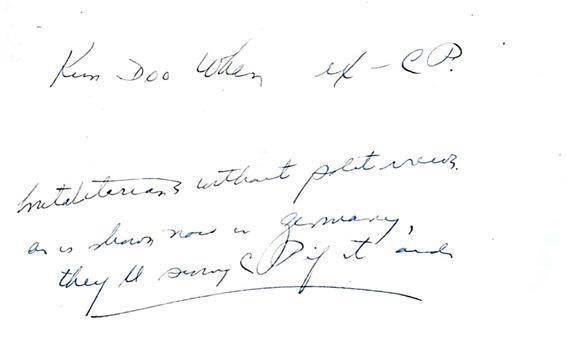 Kim Doo Whan ex-CP.
without polit views.
as is shown now in Germany,
they'll swing CP if it